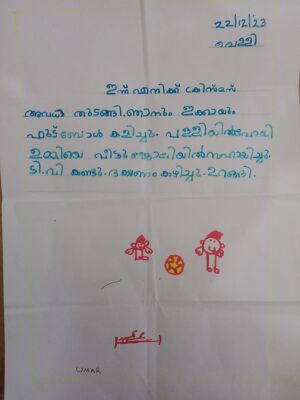 22/12/23
വെള്ളി
ഇന്ന് എനിക്ക് ക്രിസ്മസ്
അവധി തുടങ്ങി. ഞാനും ഇക്കായും
ഫുട്ബോൾ കളിച്ചു. പള്ളിയിൽപോയി
ഉമ്മിയെ വീട്ടുജോലിയിൽസഹായിച്ചു.
ടി.വി കണ്ടു. ഭക്ഷണം കഴിച്ചു. ഉറങ്ങി.
UMAR